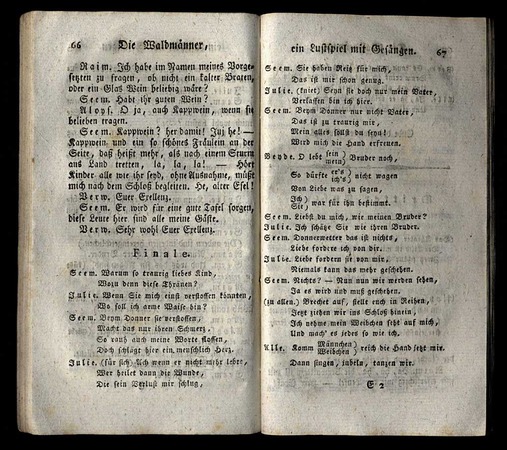 66 Die Waldmänner,
Raim. Ich habe im Namen meines Vorge-
setzten zu fragen, ob nicht ein kalter Braten,
oder ein Glas Wein beliebig wäre?
Seem. Habt ihr guten Wein?
Aloys. O ja, auch Kappwein, wenn sie
belieben tragen.
Seem. Kappwein? her damit! Juj he! —
Kappwein und ein so schönes Fräulein an der
Seite, daß heißt mehr, als nach einem Sturm
ans Land tretten, la, la, la! — Hört
Kinder alle wie ihr seyd, ohne Ausnahme, müßt
mich nach dem Schloß begleiten. He, alter Esel!
Verw. Euer Exellenz.
Seem. Er wird für eine gute Tafel sorgen,
diese Leute hier sind alle meine Gäste.
Verw. Sehr wohl Euer Exellenz.
Finale.
Seem. Warum so traurig liebes Kind,
Wozu denn diese Thränen?
Julie. Wenn Sie mich einst verstossen könnten,
Wo soll ich arme Waise hin?
Seem. Beym Donner sie verstossen,
Macht das nur ihren Schmerz,
So rauh auch meine Worte flossen,
Doch schlägt hier ein menschlich Herz.
Julie. (für sich) Ach wenn er nicht mehr lebte,
Wer heilet dann die Wunde,
Die sein Verlust mir schlug,
ein Lustspiel mit Gesängen. 67
Seem. Sie haben Reitz für mich,
Das ist mir schon genug.
Julie. (kniet) Seyn sie doch nur mein Vater,
Verlassen bin ich hier.
Seem. Beym Donner nur nicht Vater,
Das ist zu traurig mir,
Mein alles sollst du seyn!
Wird mich die Hand erfreuen.
Beyde. O lebt sein) Bruder noch,
mein)
So dürfte er's) nicht wagen
ich's)
Von Liebe was zu sagen,
Ich) war für ihn bestimmt.
Sie)
Seem. Liebst du mich, wie meinen Bruder?
Julie. Ich schätze Sie wie ihren Bruder.
Seem. Donnerwetter das ist nichts,
Liebe fordere ich von dir.
Julie. Liebe fordern sie von mir,
Niemals kann das mehr geschehen.
Seem. Nichts? — Nun nun wir werden sehen,
Ja es wird und muß geschehen.
(zu allen.) Brechet auf, stelle euch in Reihen,
Jetzt ziehen wir ins Schloß hinein,
Ich nehme mein Weibchen jetzt auf mich,
Und mach' es jedes so wie ich.
Alle. Komm Männchen) reich die Hand jetzt mir.
Weibchen)
Dann singen, jubeln, tanzen wir.
E 2